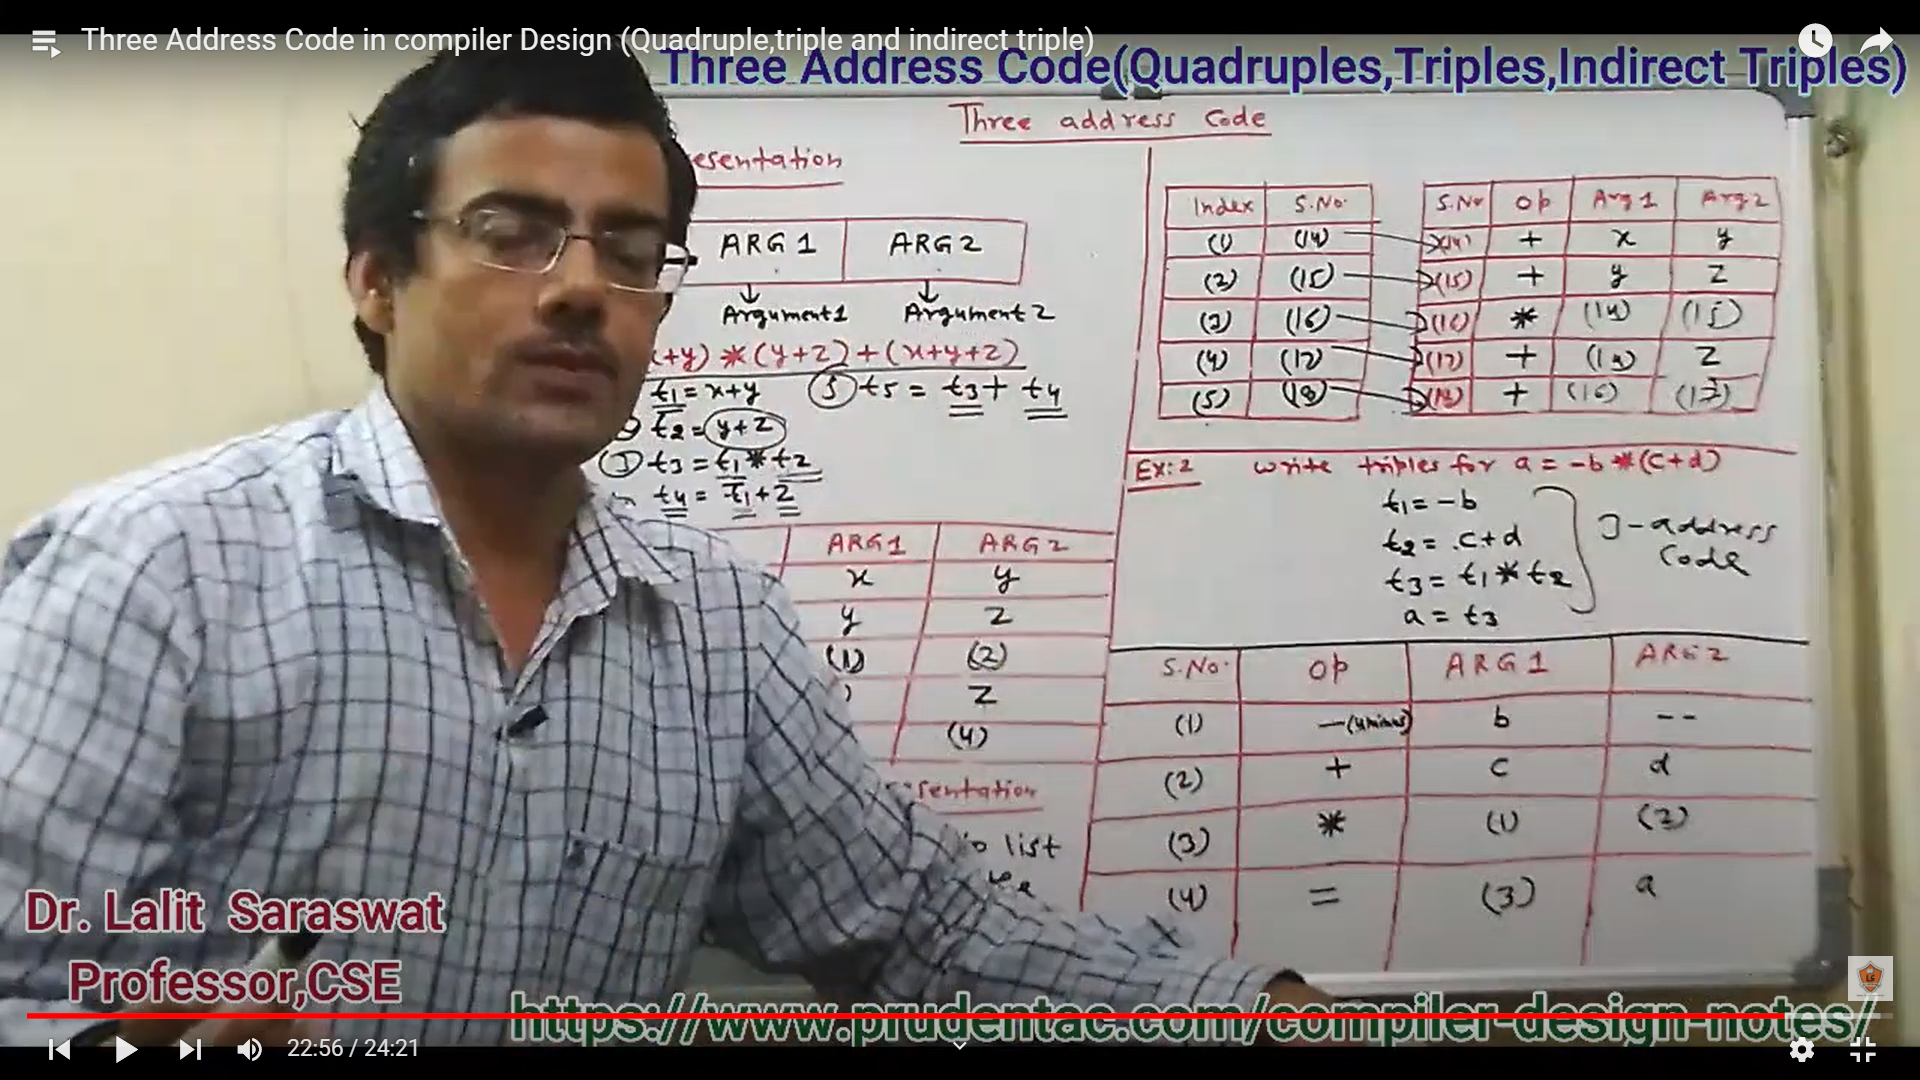 Three Address Code in compiler Design (Quadruple,triple and indirect triple)
Three Address Code(Quadruples,Triples,Indirect Triples)
Three address Code
esentation
ARG 1 ARG 2
Argument 1 Argument 2
+y) * (y+z) + (x+y+z)
t1 = x+y (5) t5 = t3 + t4
t2 = y+z
(3) t3 = t1 * t2
t4 = t1 + z
ARG 1 ARG 2
x y
y z
(1) (2)
) z
(4)
sentation
list
Index S.No.
(1) (14)
(2) (15)
(3) (16)
(4) (17)
(5) (18)
S.No Op Arg 1 Arg 2
(14) + x y
(15) + y z
(16) * (14) (15)
(17) + (14) z
(18) + (16) (17)
Ex: 2 write triples for a = -b * (c+d)
t1 = -b
t2 = c+d
t3 = t1 * t2
a = t3
3-address
Code
S.No. Op ARG 1 ARG 2
(1) - (uminus) b --
(2) + c d
(3) * (1) (2)
(4) = (3) a
Dr. Lalit Saraswat
Professor,CSE
https://www.prudentac.com/compiler-design-notes/
22:56 / 24:21